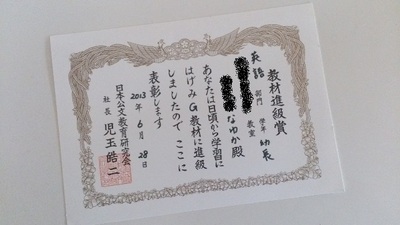 教材進級賞
英語 部門 学年 幼長
教室
なゆか殿
あなたは日頃から学習に
はげみ G教材に進級
しましたので ここに
表彰します
2013年 6月 28日
日本公文教育研究会
社長 児玉皓二